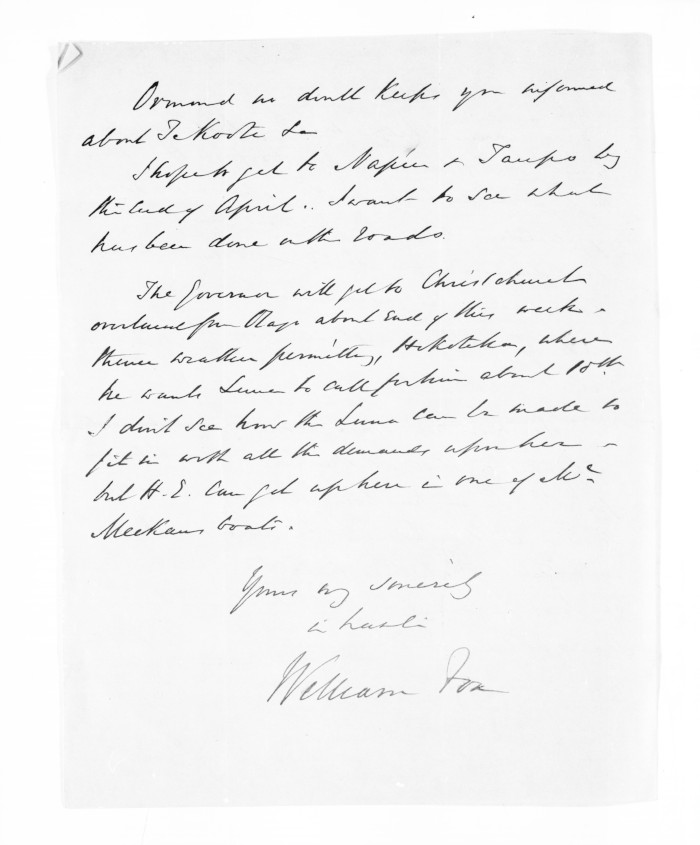 Ormond no doubt keeps you informed
about Te Kooti &c
I hope to get to Napier & Taupo by
the end of April.. I want to see what
has been done on the roads.
The Governor will get to Christchurch
overland from Otago about end of this week -
thence weather permitting, Hokitika, where
he wants Luna to call for him about 10th
I don't see how the Luna can be made to
fit in with all the demands upon her -
but H.E. can get up here in one of Mc
Meekans boats.
Yours very sincerely
in haste
William Fox